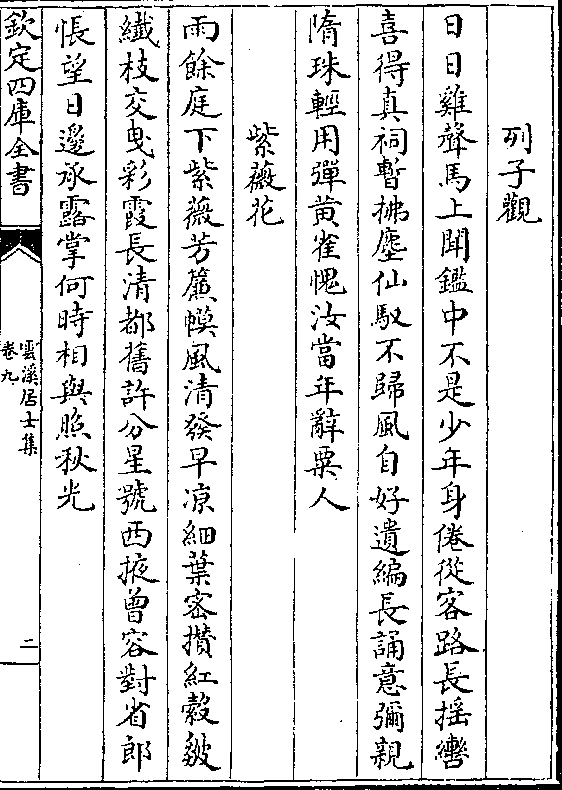 列子觀
日日雞聲馬上聞鑑中不是少年身倦從客路長揺轡
喜得真祠暫拂塵仙馭不歸風自好遺編長誦意彌親
隋珠輕用彈黄雀愧汝當年辭粟人
紫薇花
雨餘庭下紫薇芳簾幙風清發早凉細葉宻攢紅縠皺
纎枝交曵彩霞長清都舊許分星號西掖曾容對省郎
悵望日邊承露掌何時相與照秋光
欽定四庫全書
雲溪居士集
卷九
二